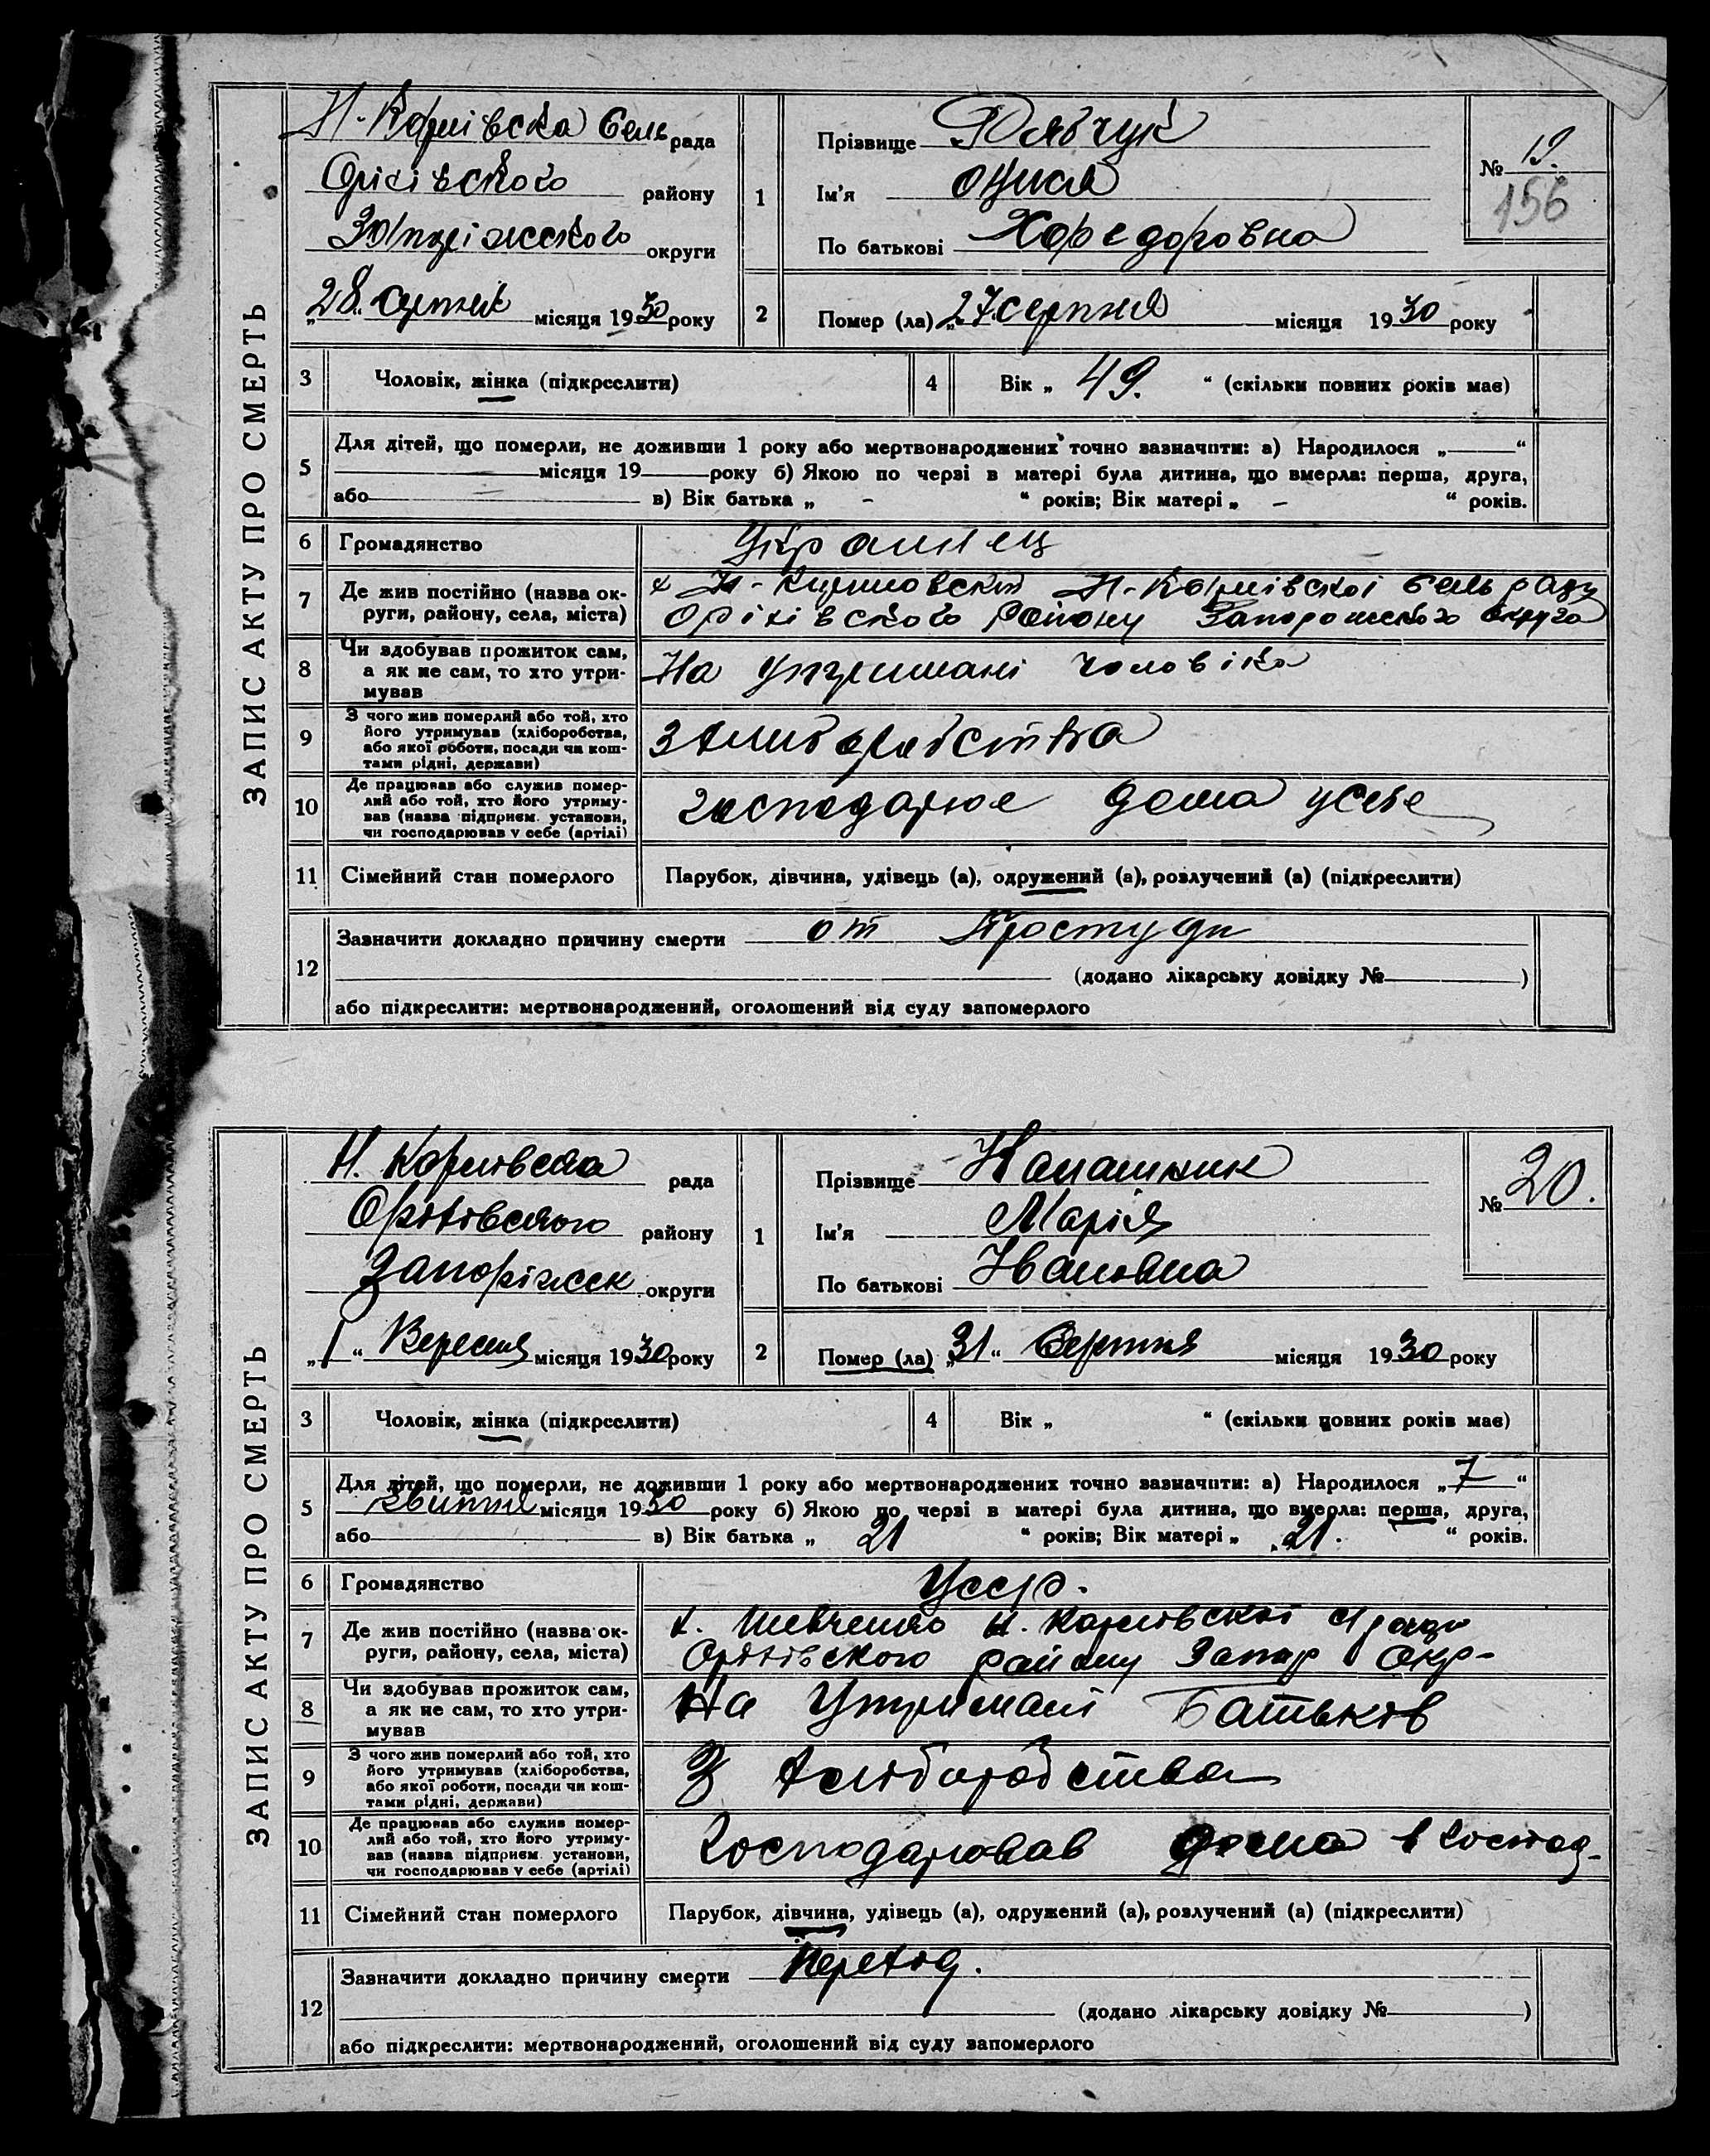 ЗАПИС АКТУ ПРО СМЕРТЬ
Н-Карлівска Сель рада
Оріхівського району
округи
„28“ серпня місяця 1930 року
1
Прізвище
Ім'я
По батькові
№ 19.
156
2 Помер (ла) „27 серпня місяця 1930 року
3 Чоловік, жінка (підкреслити)
4 Вік „ 49. “ (скільки повних років має)
5 Для дітей, що померли, не доживши 1 року або мертвонароджених точно зазначити: а) Народилося „ “
місяця 19 року б) Якою по черзі в матері була дитина, що вмерла: перша, друга,
або в) Вік батька „ - “ років; Вік матері „ - “ років.
6 Громадянство Українец
7 Де жив постійно (назва округи, району, села, міста)
х Н- Н-Карлівскоі Сель раду
Оріхівського Району Запорожського округа
8 Чи здобував прожиток сам,
а як не сам, то хто утри-
мував
На утримані чоловіка
9 З чого жив померлий або той, хто
його утримував (хліборобства,
або якої роботи, посади чи кош-
тами рідні, держави)
З хлиборобства
10 Де працював або служив помер-
лий або той, хто його утриму-
вав (назва підприєм. установи,
чи господарював у себе (артілі)
господарює дома усебе
11 Сімейний стан померлого Парубок, дівчина, удівець (а), одружений (а), розлучений (а) (підкреслити)
12 Зазначити докладно причину смерти от Простуди
(додано лікарську довідку № )
або підкреслити: мертвонароджений, оголошений від суду запомерлого
ЗАПИС АКТУ ПРО СМЕРТЬ
Н. Карлівска рада
Оріхівського району
Запоріжск округи
„1“ Вересня місяця 1930 року
1
Прізвище
Ім'я Марія
По батькові Івановна
№ 20.
2 Помер (ла) „31“ Серпня місяця 1930 року
3 Чоловік, жінка (підкреслити)
4 Вік „ “ (скільки повних років має)
5 Для дітей, що померли, не доживши 1 року або мертвонароджених точно зазначити: а) Народилося „7“
Квитня місяця 1930 року б) Якою по черзі в матері була дитина, що вмерла: перша, друга,
або в) Вік батька „ 21 “ років; Вік матері „ 21. “ років.
6 Громадянство Усср.
7 Де жив постійно (назва округи, району, села, міста)
х. Шевченко Н. Карлівскоі с/ради
Оріхівського району Запор Окр-
8 Чи здобував прожиток сам,
а як не сам, то хто утри-
мував
На Утримані Батьков
9 З чого жив померлий або той, хто
його утримував (хліборобства,
або якої роботи, посади чи кош-
тами рідні, держави)
З хлiборобства
10 Де працював або служив помер-
лий або той, хто його утриму-
вав (назва підприєм. установи,
чи господарював у себе (артілі)
Господарював дома в господ-
11 Сімейний стан померлого Парубок, дівчина, удівець (а), одружений (а), розлучений (а) (підкреслити)
12 Зазначити докладно причину смерти Перехід.
(додано лікарську довідку № )
або підкреслити: мертвонароджений, оголошений від суду запомерлого